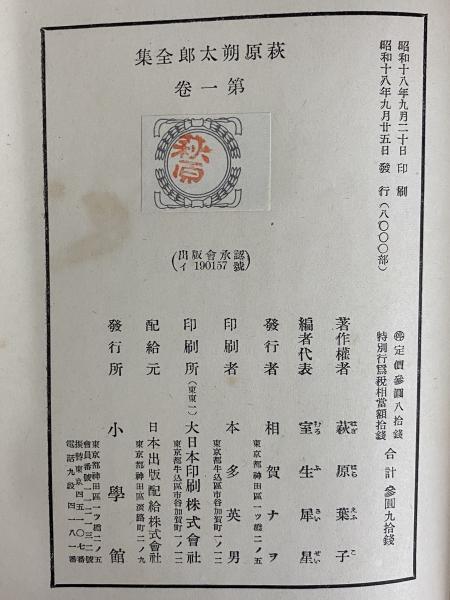 萩原朔太郎全集
第一卷
萩原
(出版會承認
イ190157號)
昭和十八年九月二十日 印刷
昭和十八年九月廿五日 發行(八〇〇〇部)
㊞定價參圓八拾錢
特別行爲税相當額拾錢
合計 參圓九拾錢
著作權者 萩原葉子
はぎ はら えふ こ
編者代表 室生犀星
むろ ふ さい せい
發行者 相賀ナヲ
東京都神田區一ツ橋二ノ五
印刷者 本多英男
東京都牛込區市谷加賀町一ノ一二
印刷所(東東一) 大日本印刷株式會社
東京都牛込區市谷加賀町一ノ一二
配給元 日本出版配給株式會社
東京都神田區淡路町二ノ九
發行所 小學館
東京都神田區一ツ橋二ノ五
會員番號一一二二三二號
振替東京四五一〇七番
電話九段四一八一番